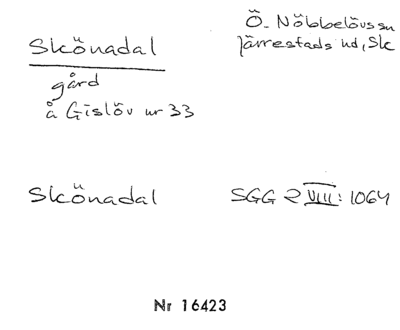 Skönadal
Ö. Nöbbelövs sn
Järrestads hd, Sk
gård
å Gislöv nr 33
Skönadal
SGG 2 VIII: 1064
Nr 16423